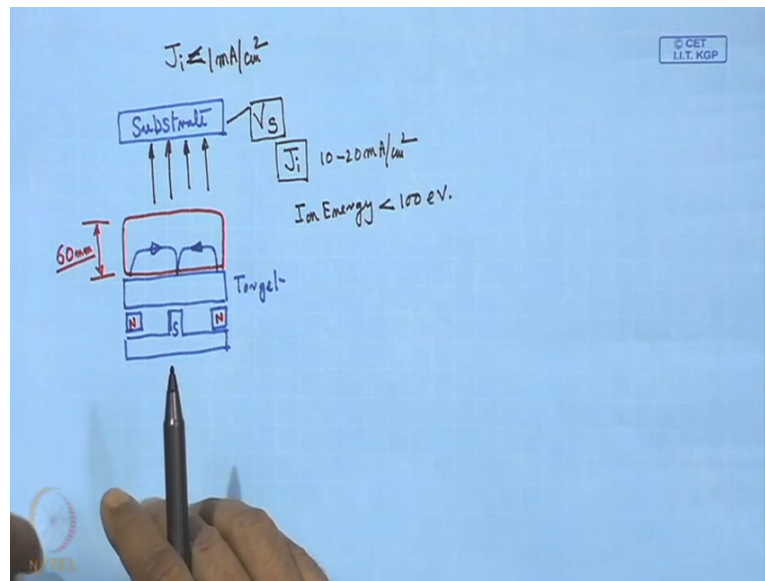 Ji ≤ 1mA/cm²
© CET
I.I.T. KGP
Substrate
Vs
Ji 10-20mA/cm²
Ion Energy < 100 eV.
60mm
Target
N S N
NPTEL